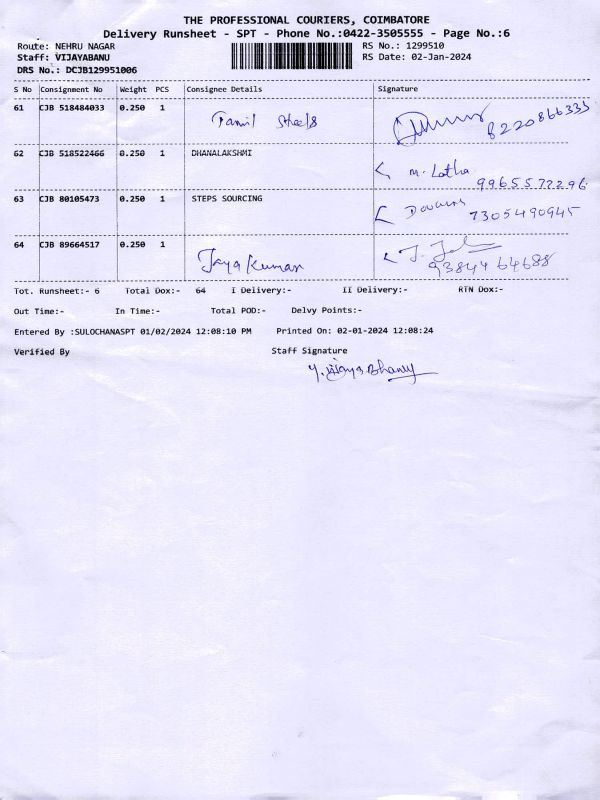 THE PROFESSIONAL COURIERS, COIMBATORE
Delivery Runsheet - SPT - Phone No.:0422-3505555 - Page No.:6
Route: NEHRU NAGAR RS No.: 1299510
Staff: VIJAYABANU RS Date: 02-Jan-2024
DRS No.: DCJB129951006
S No Consignment No Weight PCS Consignee Details Signature
61 CJB 518484033 0.250 1 Tamil Steels 8220866335
62 CJB 518522466 0.250 1 DHANALAKSHMI M. Latha
9965577296
63 CJB 80105473 0.250 1 STEPS SOURCING
7305490945
64 CJB 89664517 0.250 1 Jaya Kumar
9384464688
Tot. Runsheet:- 6 Total Dox:- 64 I Delivery:- II Delivery:- RTN Dox:-
Out Time:- In Time:- Total POD:- Delvy Points:-
Entered By :SULOCHANASPT 01/02/2024 12:08:10 PM Printed On: 02-01-2024 12:08:24
Verified By Staff Signature
Y. Vijaya Bhanu